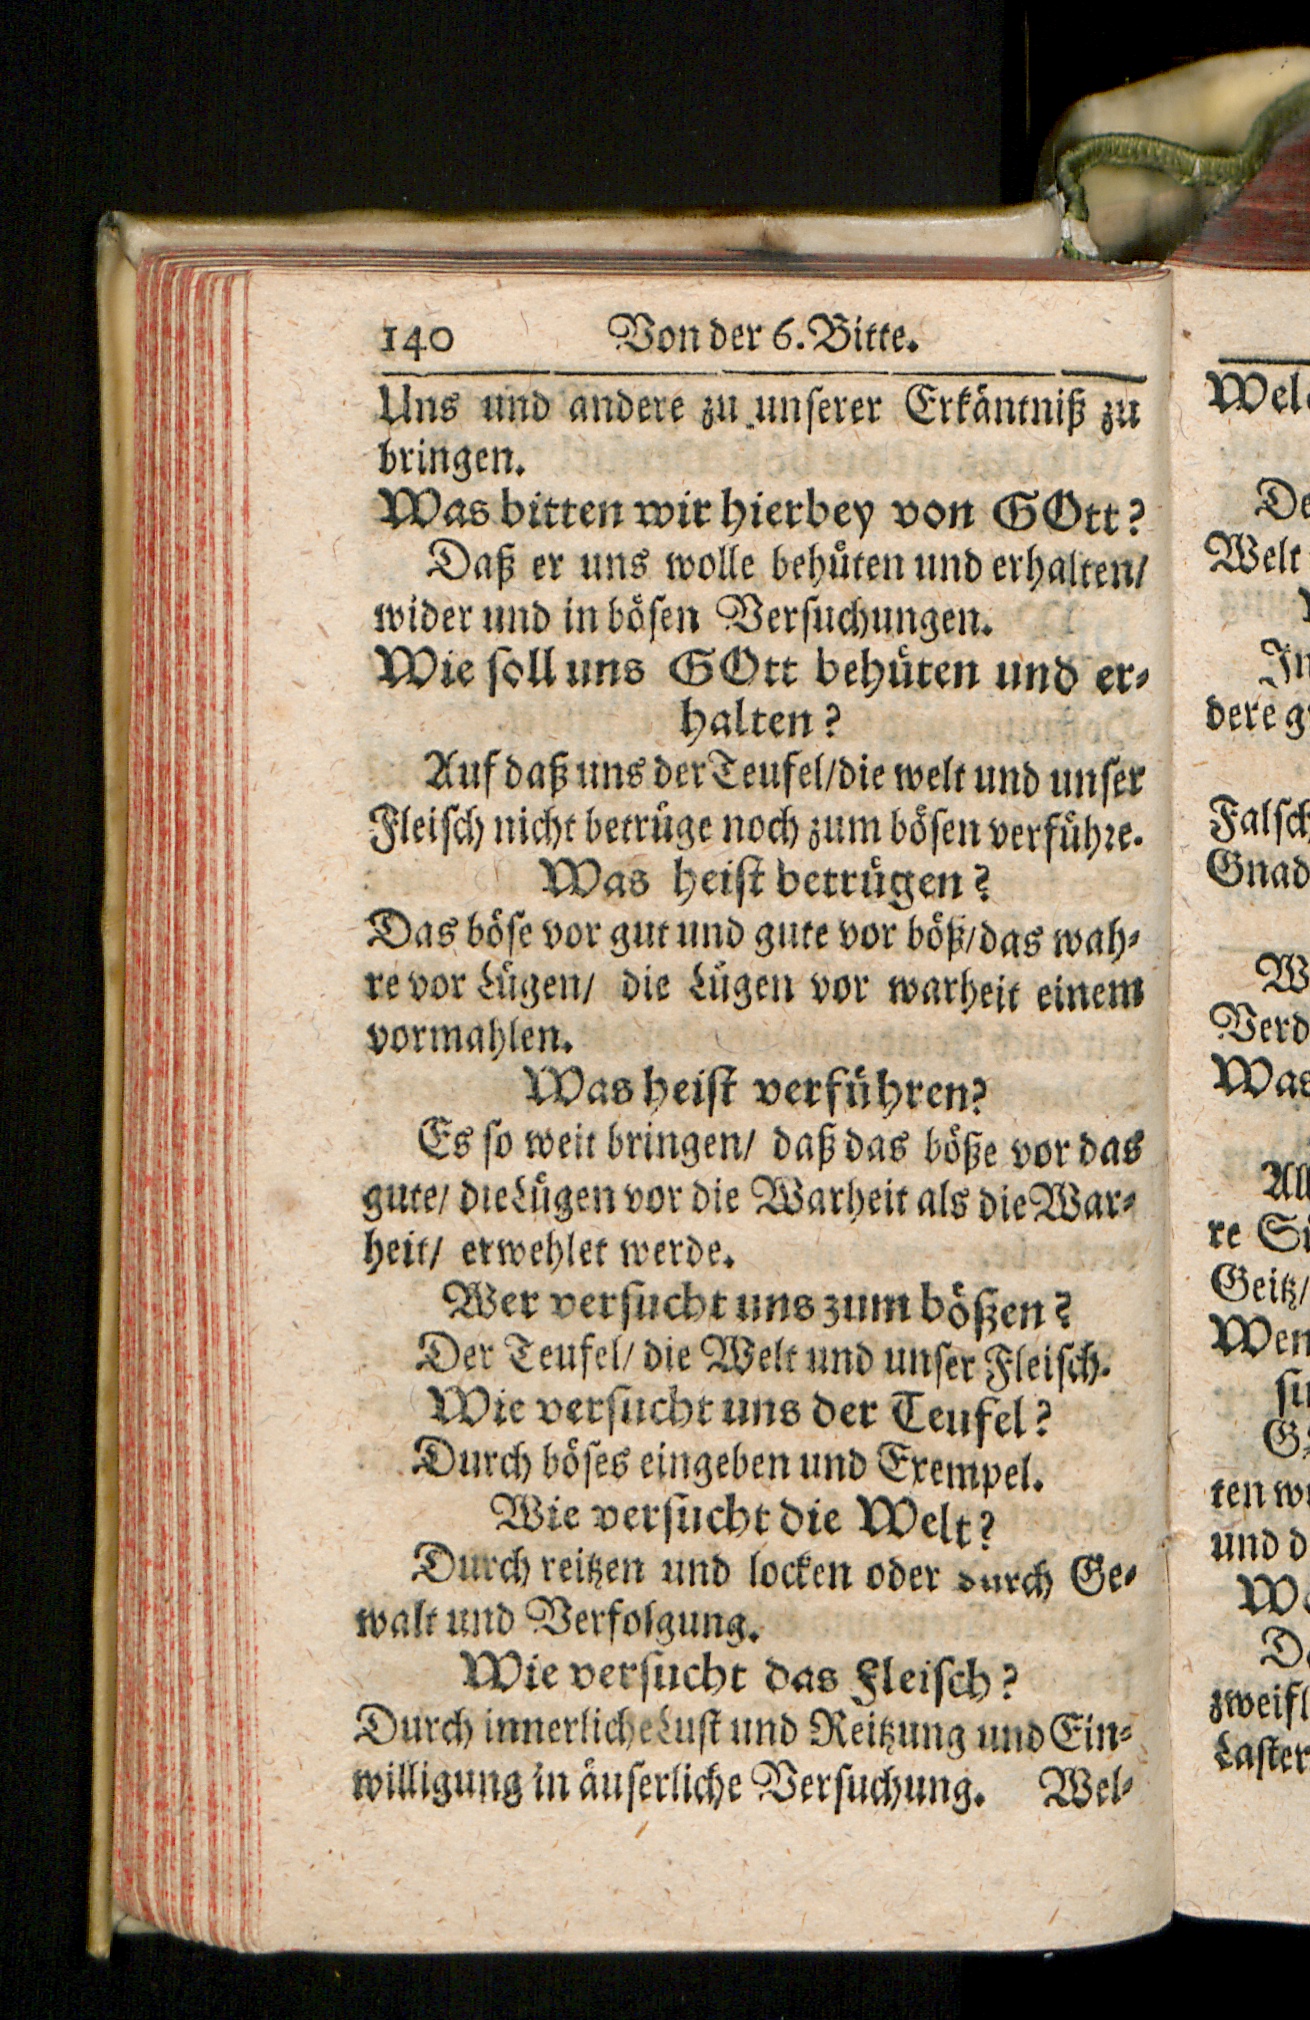 140 Von der 6. Bitte.
Uns und andere zu unserer Erkäntniß zu
bringen.
Was bitten wir hierbey von GOtt?
Daß er uns wolle behüten und erhalten/
wider und in bösen Versuchungen.
Wie soll uns GOtt behüten und er-
halten?
Auf daß uns der Teufel/die welt und unser
Fleisch nicht betrüge noch zum bösen verführe.
Was heist betrügen?
Das böse vor gut und gute vor böß/das wah-
re vor Lügen/ die Lügen vor warheit einem
vormahlen.
Was heist verführen?
Es so weit bringen/ daß das böße vor das
gute/ die Lügen vor die Warheit als die War-
heit/ erwehlet werde.
Wer versucht uns zum bößen?
Der Teufel/ die Welt und unser Fleisch.
Wie versucht uns der Teufel?
Durch böses eingeben und Exempel.
Wie versucht die Welt?
Durch reitzen und locken oder durch Ge-
walt und Verfolgung.
Wie versucht das Fleisch?
Durch innerliche Lust und Reitzung und Ein-
willigung in äuserliche Versuchung. Wel-
De
Welt
In
dere
W
Was
re
Geitz/
ten
und d